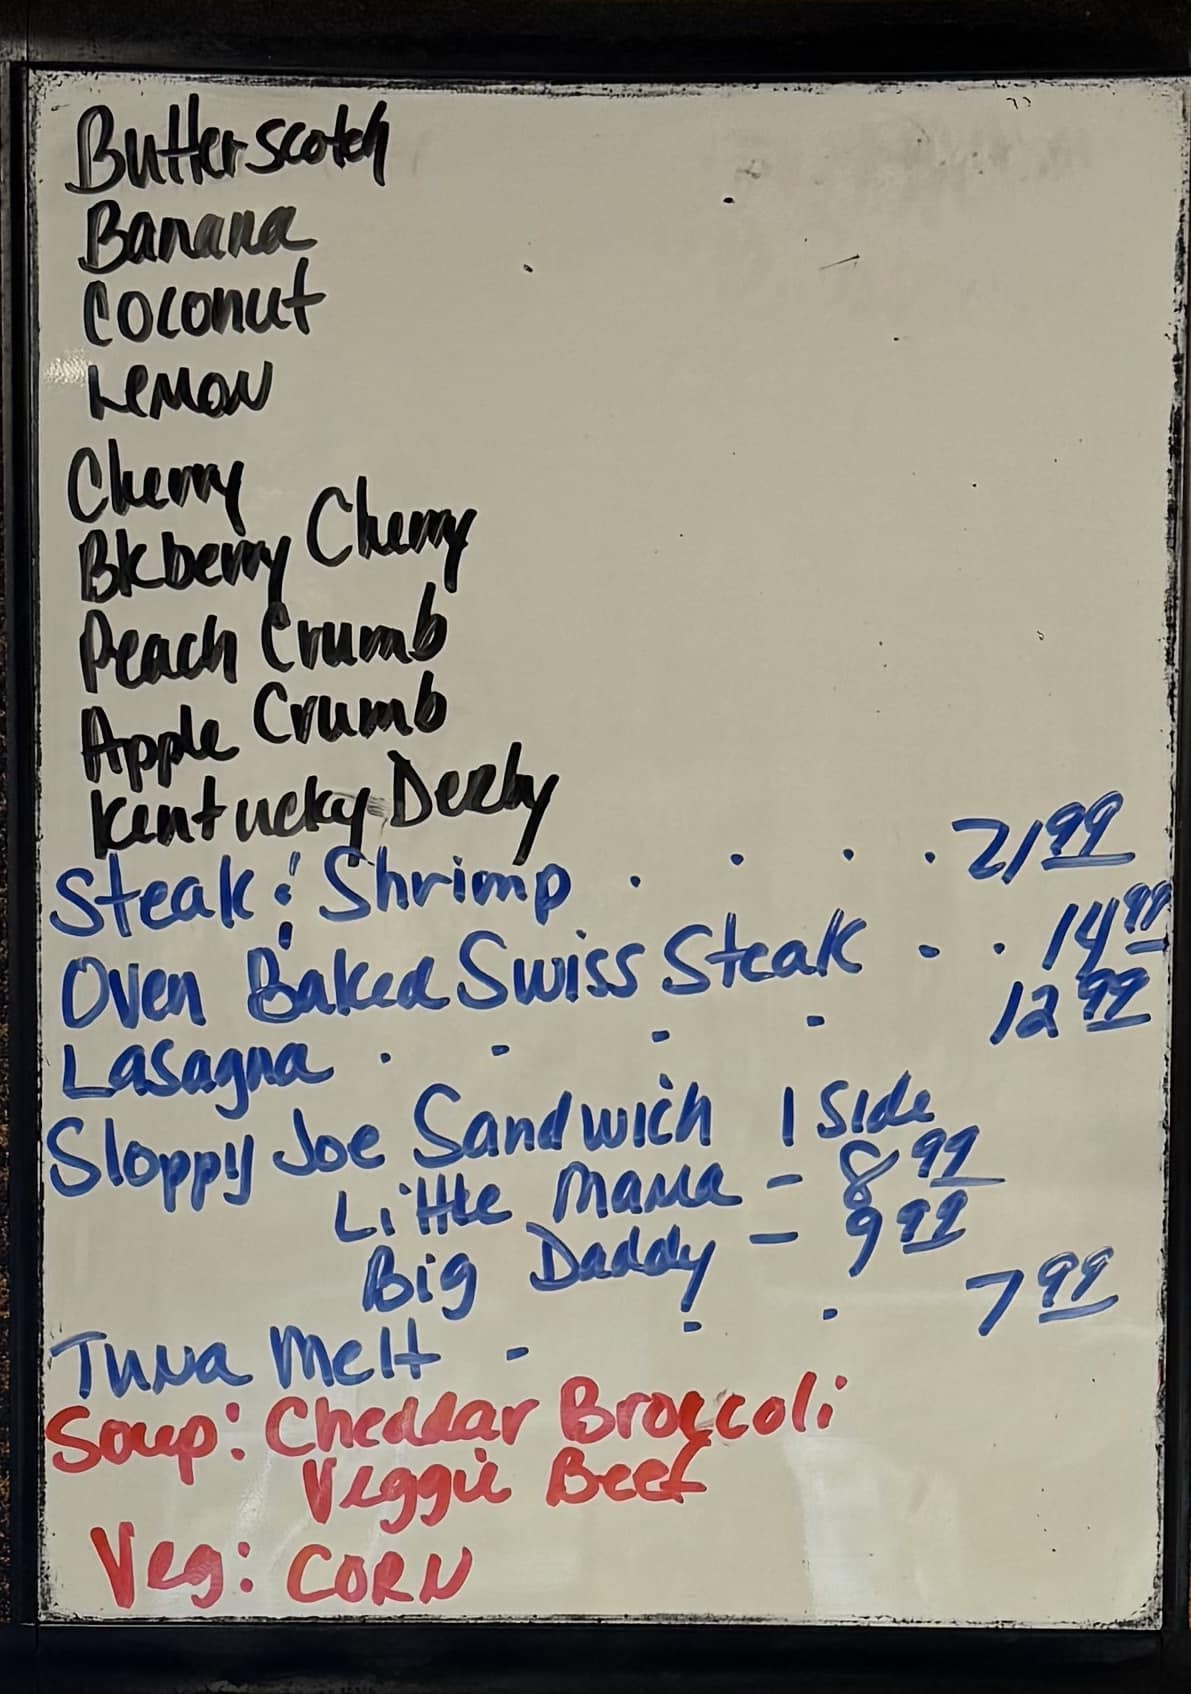 Butterscotch
Banana
Coconut
Lemon
Cherry
Bkberry Cherry
Peach Crumb
Apple Crumb
Kentucky Derby
Steak & Shrimp . . . . 21 99
Oven Baked Swiss Steak . . 14 99
Lasagna . . . . 12 99
Sloppy Joe Sandwich 1 Side
Little Mama - 8 99
Big Daddy - 9 99
Tuna Melt - . . 7 99
Soup: Cheddar Broccoli
Veggie Beef
Veg: CORN